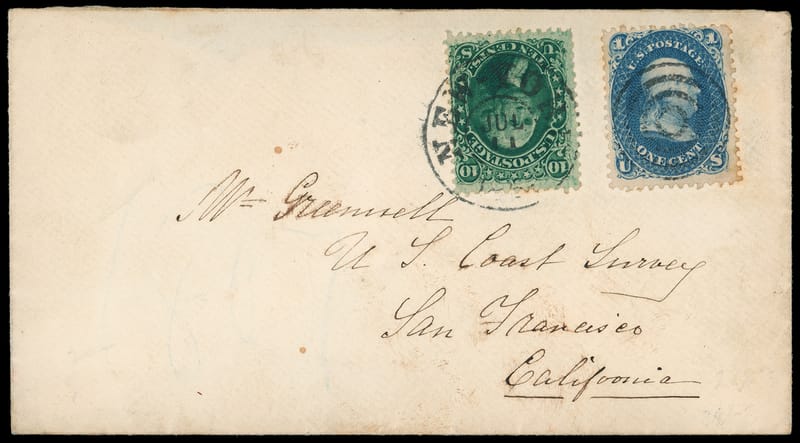 TEN CENTS
U.S.POSTAGE
10 10
U S
1 1
U.S.POSTAGE
ONE CENT
U S
NEW YORK
JUL
11
Wm Greenwell
U S. Coast Survey
San Francisco
California